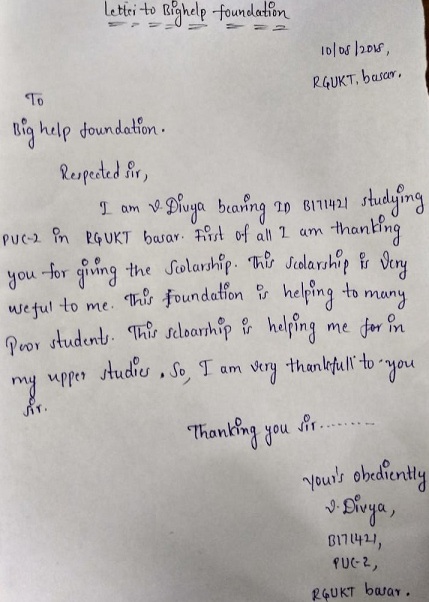 Letter to Bighelp foundation
10/08/2018,
RGUKT, basar.
To
Big help foundation.
Respected sir,
I am v. Divya bearing ID B171421 studying
PUC-2 in RGUKT basar. First of all I am thanking
you for giving the Scolarship. This scolarship is Very
useful to me. This foundation is helping to many
Poor students. This scloarship is helping me for in
my upper studies. So, I am very thankfull to you
sir.
Thanking you sir.........
your's obediently
v. Divya,
B171421,
PUC-2,
RGUKT basar.